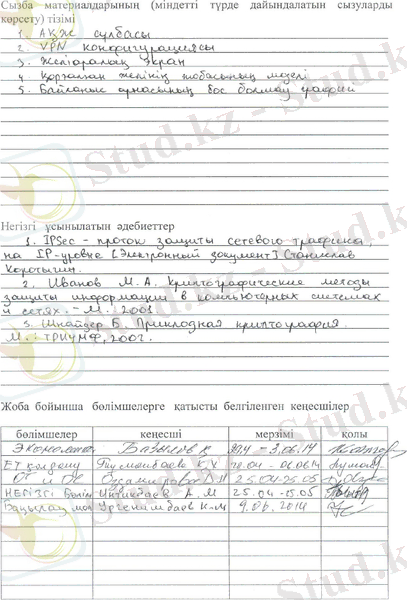 Сызба материалдарының (міндетті түрде дайындалатын сызуларды
көрсету) тізімі
1. АҚЖ сұлбасы
2. VPN конфигурациясы
3. Желіаралық экран
4. Қорғалған желінің жобасының моделі
5. Байланыс арнасының бос болмау графигі
Негізгі ұсынылатын әдебиеттер
1. IPSec - проток защиты сетевого траффика,
на IP-уровне [Электронный документ] Станислав
Коротыгин.
2. Иванов М.А. Криптографические методы
защиты информации в компьютерных системах
и сетях. - М., 2001
3. Шнайдер Б. Прикладная криптография.
М.: ТРИУМФ, 2002.
Жоба бойынша бөлімшелерге қатысты белгіленген кеңесшілер
бөлімшелер кеңесші мерзімі қолы
Экономика - 3.06.14
ЕТ қолдану 06.06.14
25.04-25.05
Негізгі бөлім А.М 25.04-25.05
Бақылау 9.06.2014
Stud.kz - Stud.kz